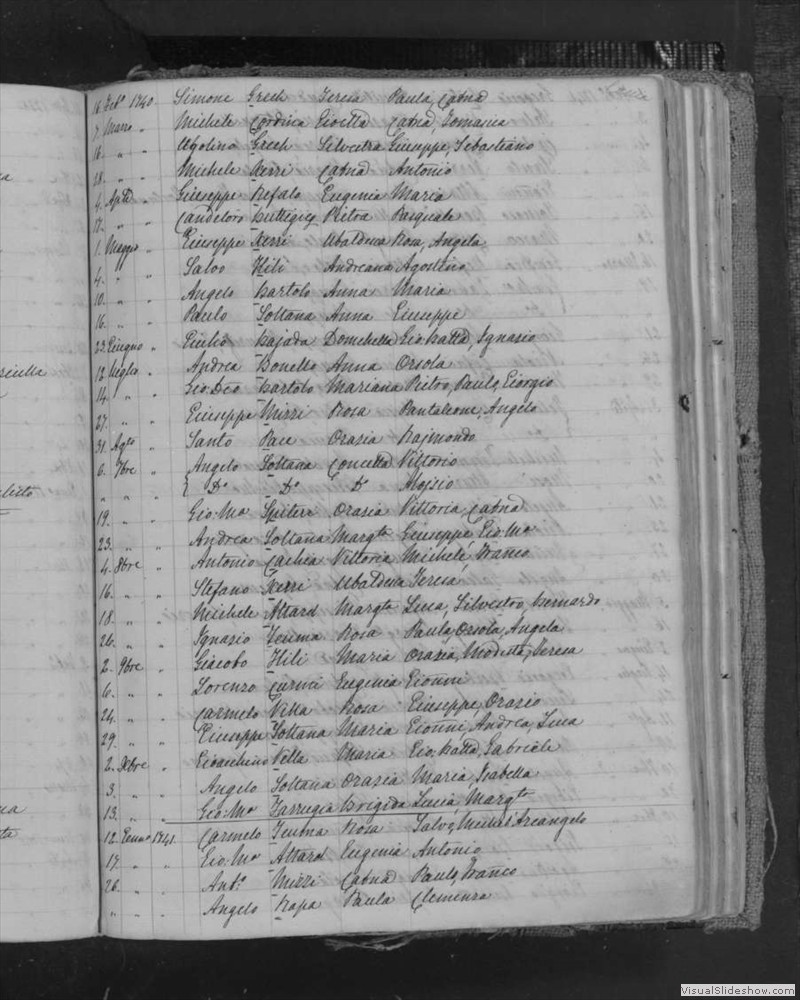 16 Feb.o 1740. Simone Grech Teresa Paula, Catna
7. Marzo " Michele Cordina Gioella Catna, Tomasia
16. " " Ugolino Grech Silvestra Giuseppe, Sebastiano
28. " " Michele Xerri Catna Antonio
4. Aple " Giuseppe Refalo Eugenia Maria
17. " " Candeloro Buttigieg Pietra Pasquale
1. Maggio " Giuseppe Xerri Ubaldesca Rosa, Angela
4. " " Salvo Hili Andreana Agostino
10. " " Angelo Bartolo Anna Maria
16. " " Paulo Soltana Anna Giuseppe
23. Giugno " Giulio Bajada Domchella Gio: Batta, Ignazio
12. Luglio " Andrea Bonello Anna Orsola
14. " " Gio: Deo Bartolo Mariana Pietro, Paulo, Giorgio
27. " " Giuseppe Mizzi Rosa Pantaleone, Angelo
31. Agto " Santo Pace Orazia Rajmondo
6. 7bre " Angelo Soltana Concetta Vittorio
" " " { Do Do Do Aloisio
19. " " Gio: Ma Spiteri Orazia Vittoria, Catna
23. " " Andrea Soltana Margta Giuseppe, Gio: Ma
4. 8bre " Antonio Cachia Vittoria Michele, Franco
16. " " Stefano Xerri Ubaldesca Teresa
18. " " Michele Attard Margta Luca, Silvestro, Bernardo
26. " " Ignazio Teuma Rosa Paula, Orsola, Angela
2. 9bre " Giacobo Hili Maria Orazia, Modesta, Teresa
6. " " Lorenzo Curmi Eugenia Gionni
24. " " Carmelo Vella Rosa Giuseppe, Orazio
29. " " Giuseppe Soltana Maria Gionni, Andrea, Luca
2. Xbre " Gioacchino Vella Maria Gio: Batta, Gabriele
3. " " Angelo Soltana Orazia Maria, Isabella
13. " " Gio: Ma Farrugia Brigida Lucia, Margta
12. Genno 1741. Carmelo Teuma Rosa Salvo, Michel'Arcangelo
17. " " Gio: Ma Attard Eugenia Antonio
26. " " Anto Mizzi Catna Paulo, Franco
" " " Angelo Rapa Paula Clemenza
VisualSlideshow.com